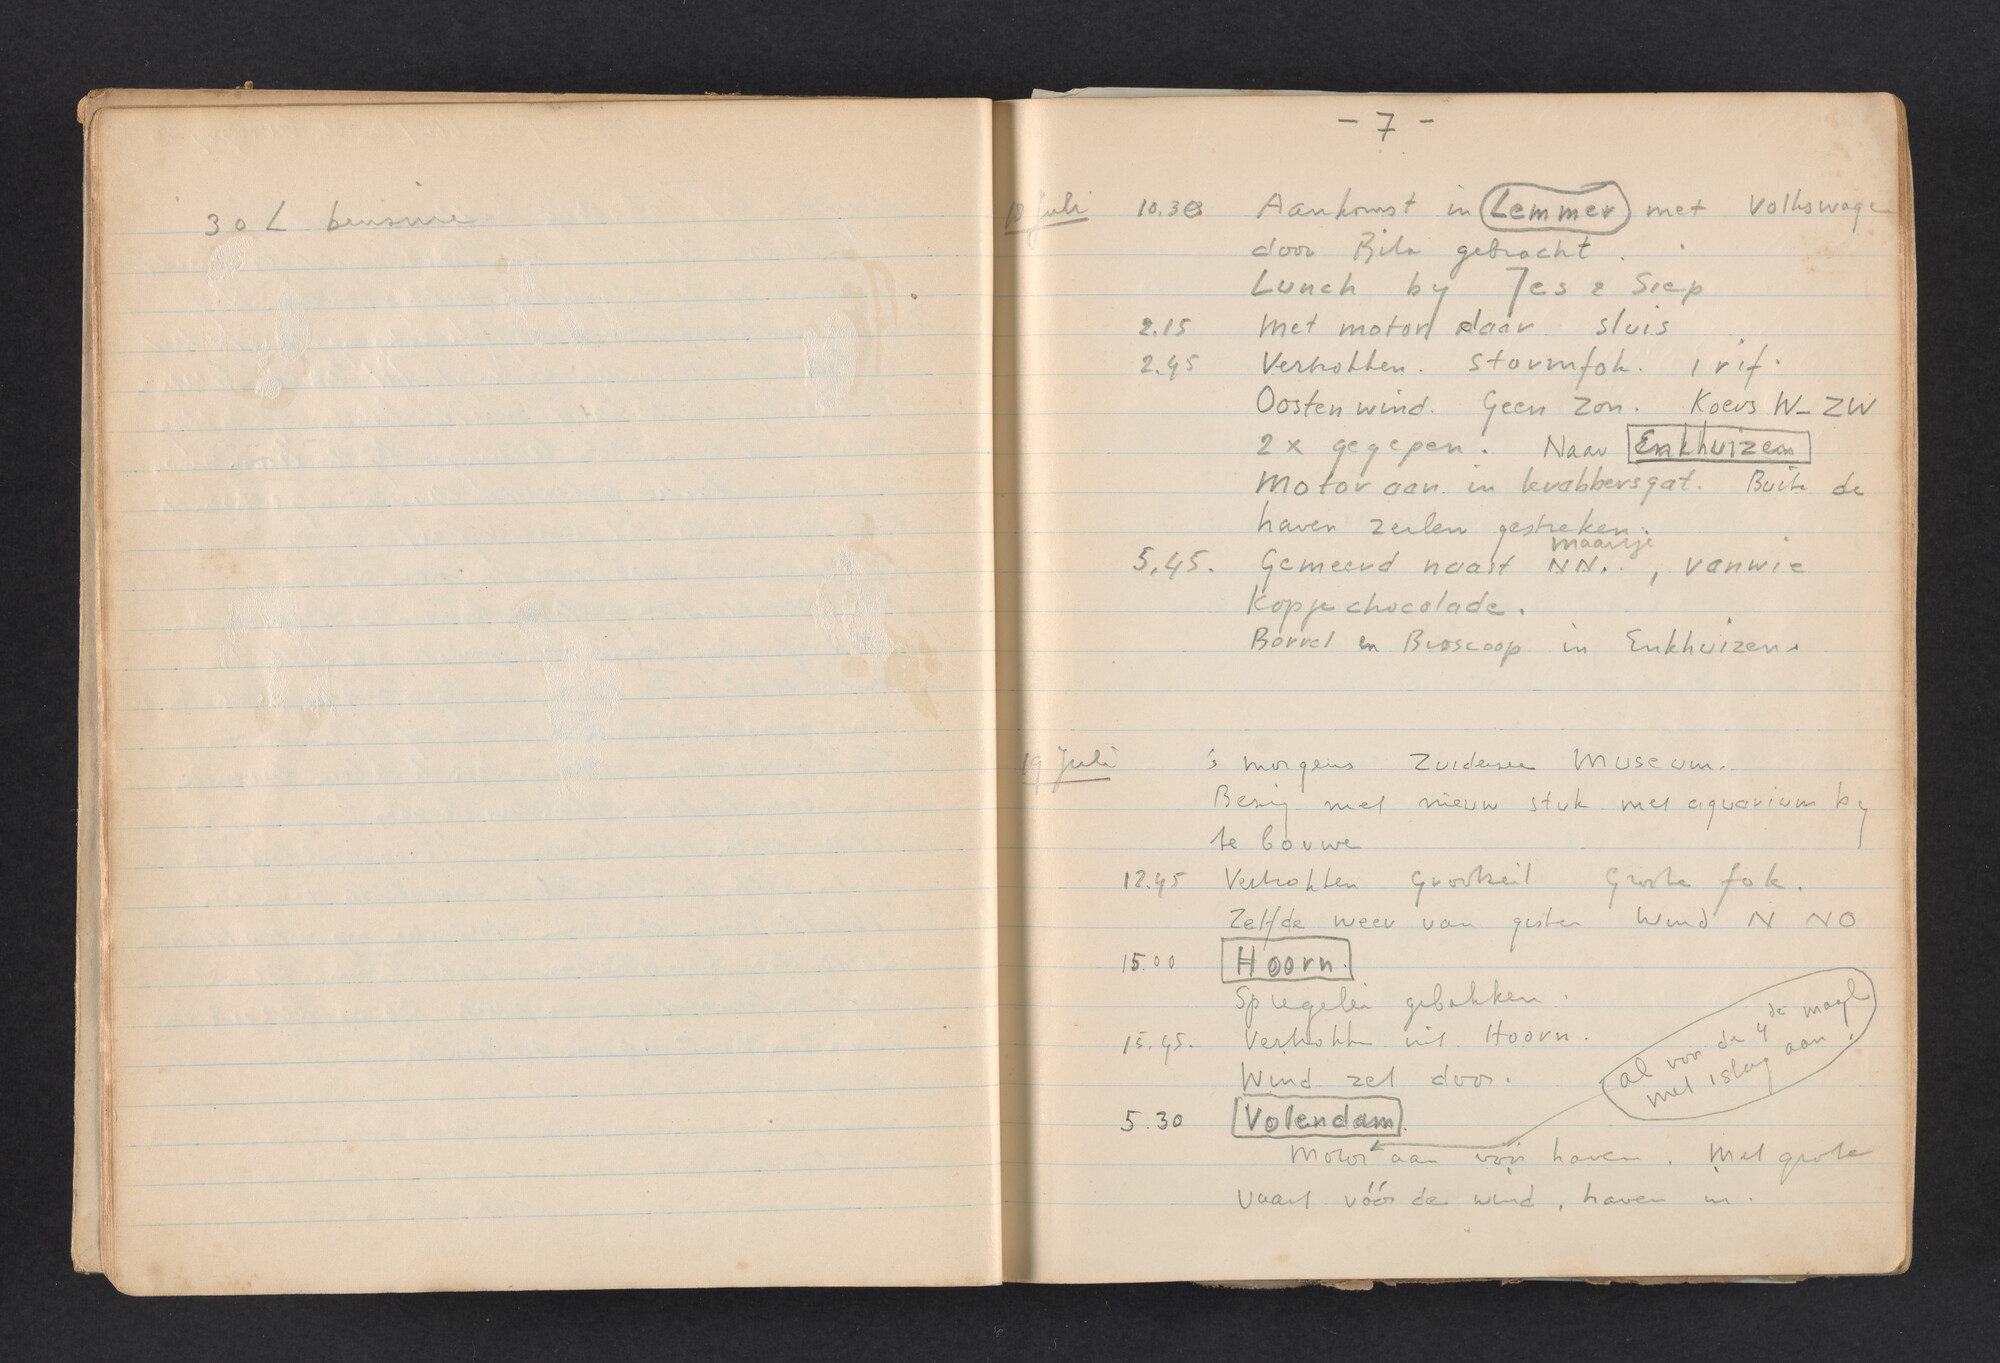 30 L bensine
- 7 -
18 Juli 10.30 Aankomst in Lemmer met Volkswage
door Bila gebracht.
Lunch by Jes & Siep
2.15 Met motor daar sluis
2.45 Vertrokken. Stormfok. 1 rif.
Oosten wind. Geen zon. Koers W-ZW
2 x gegepen. Naar Enkhuizen
Motor aan in krabbersgat. Buite de
haven zeilen gestreken.
maartje
5.45. Gemeerd naast NN. , vanwie
Kopje chocolade.
Borrel en Bioscoop in Enkhuizen.
19 Juli 's morgens Zuidersee Museum.
Bezig met nieuw stuk met aquarium by
te bouwe
12.45 Vertrokken Grootzeil Grote fok.
Zelfde weer van gister Wind N NO
15.00 Hoorn.
Spiegelei gebakken.
15.45. Vertrokke uit Hoorn.
Wind zet door.
al voor de 4de maal
met 1 slag aan.
5.30 Volendam.
Motor aan vóór haven. Met grote
vaart vóór de wind, haven in.